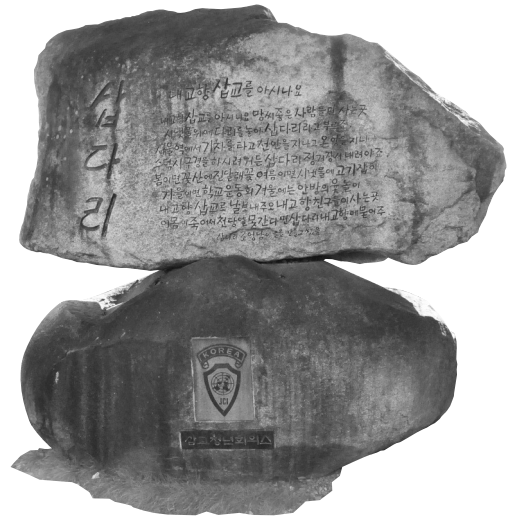 삽다리
내고향 삽교를 아시나요
내고향 삽교를 아시나요 맘씨좋은 사람들이 사는곳
시냇물위에 다리를 놓아 삽다리라고 부르죠
서울역에서 기차를 타고 천안을 지나고 온양을 지나
수덕사 구경을 하시려거든 삽다리 정거장서 내려야죠
봄이면 꽃산에 진달래꽃 여름이면 시냇물에 고기잡이
가을이면 학교운동회 겨울에는 안방의 윷놀이
내고향 삽교를 내고향친구들이 사는곳
죽어서 천당을 못간다면 삽다리 내고향에 묻어주
KOREA
JCI
삽교청년회의소